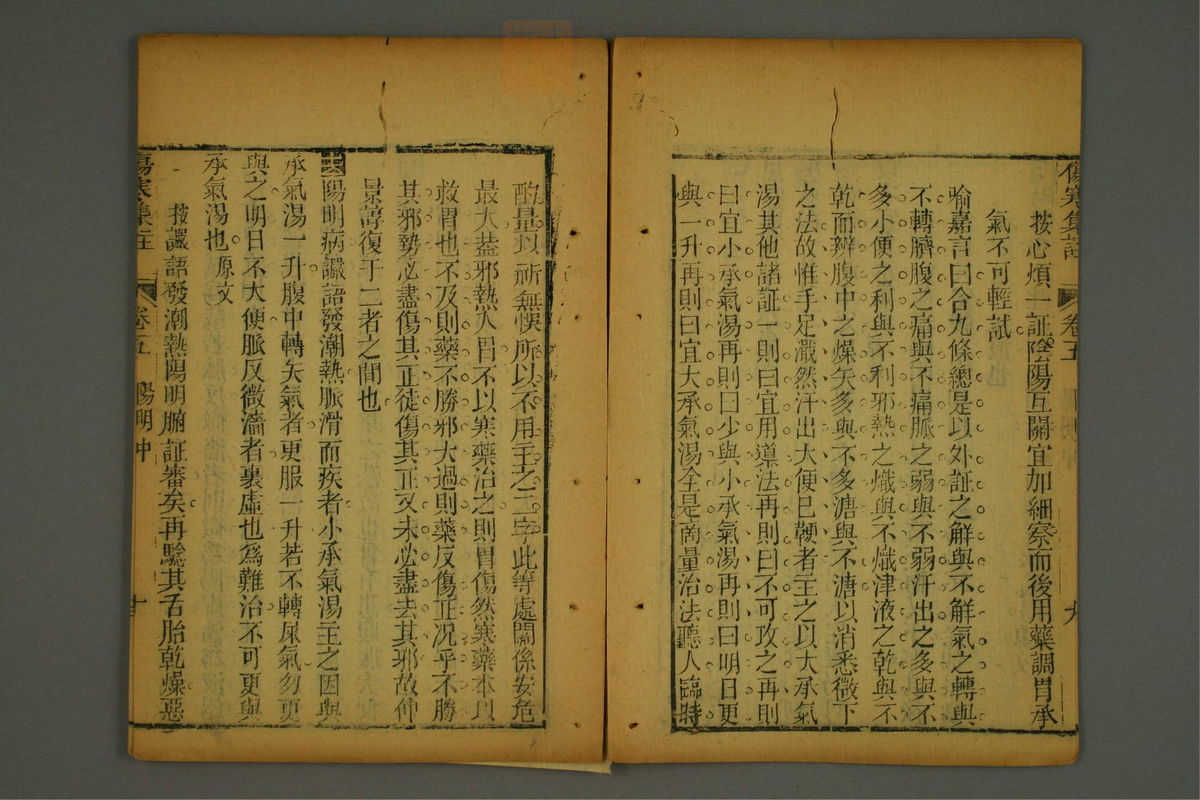 傷寒集註 卷五 九
按心煩一証陰陽互關宜加細察而後用藥調胃承
氣不可輕試
喻嘉言曰合九條總是以外証之解與不解氣之轉與
不轉臍腹之痛與不痛脈之弱與不弱汗出之多與不
多小便之利與不利邪熱之熾與不熾津液之乾與不
乾而辨腹中之燥矢多與不多溏與不溏以消悉微下
之法故惟手足濈然汗出大便巳鞕者主之以大承氣
湯其他諸証一則曰宜用導法再則曰不可攻之再則
曰宜小承氣湯再則曰少與小承氣湯再則曰明日更
與一升再則曰宜大承氣湯全是商量治法聽人臨時
酌量以祈無悞所以不用主之二字此等處關係安危
最大葢邪熱入胃不以寒藥治之則胃傷然寒藥本以
救胃也不及則藥不勝邪大過則藥反傷正况乎不勝
其邪勢必盡傷其正徒傷其正又未必盡去其邪故仲
景諄復于二者之間也
陽明病讝語發潮熱脈滑而疾者小承氣湯主之因與
承氣湯一升腹中轉矢氣者更服一升若不轉屎氣勿更
與之明日不大便脈反微濇者裏虛也為難治不可更與
承氣湯也原文
按讝語發潮熱陽明腑証審矣再驗其舌胎乾燥惡
傷寒集註 卷五 陽明中 十